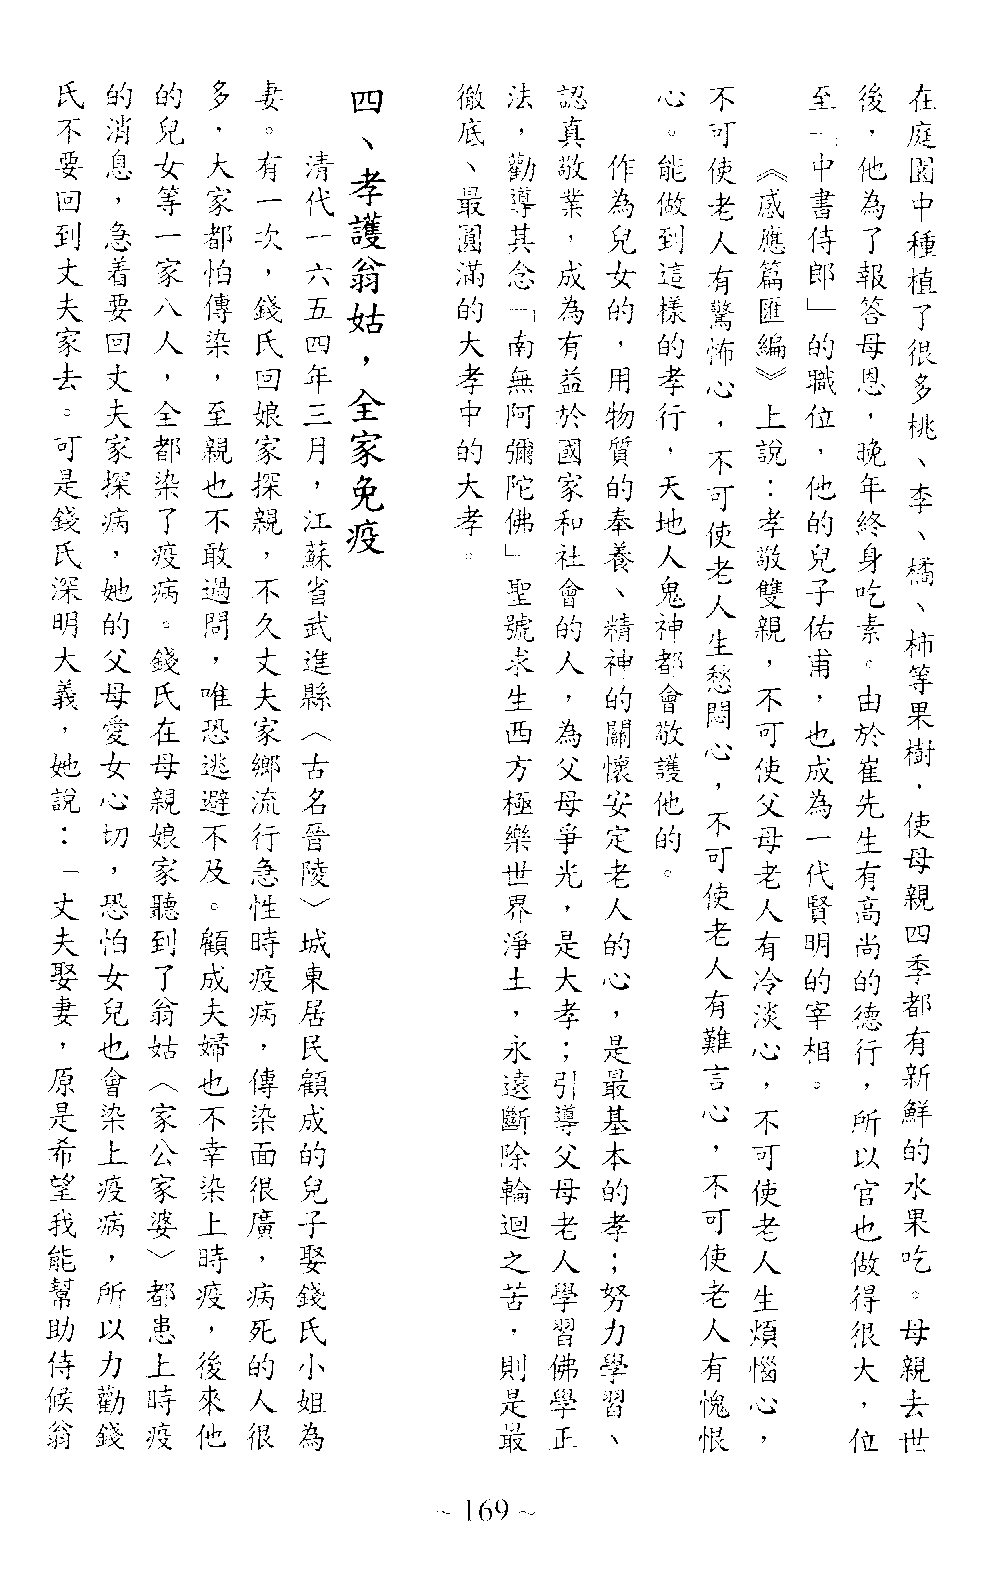 在庭園中種植了很多桃、李、橘、柿等果樹，使母親四季都有新鮮的水果吃。母親去世
後，他為了報答母恩，晚年終身吃素。由於崔先生有高尚的德行，所以官也做得很大，位
至「中書侍郎」的職位，他的兒子佑甫，也成為一代賢明的宰相。
《感應篇匯編》上說：孝敬雙親，不可使父母老人有冷淡心，不可使老人生煩惱心，
不可使老人有驚怖心，不可使老人生愁悶心，不可使老人有難言心，不可使老人有愧恨
心。能做到這樣的孝行，天地人鬼神都會敬護他的。
作為兒女的，用物質的奉養、精神的關懷安定老人的心，是最基本的孝；努力學習、
認真敬業，成為有益於國家和社會的人，為父母爭光，是大孝；引導父母老人學習佛學正
法，勸導其念「南無阿彌陀佛」聖號求生西方極樂世界淨土，永遠斷除輪迴之苦，則是最
徹底、最圓滿的大孝中的大孝。
四、孝護翁姑，全家免疫
清代一六五四年三月，江蘇省武進縣（古名晉陵）城東居民顧成的兒子娶錢氏小姐為
妻。有一次，錢氏回娘家探親，不久丈夫家鄉流行急性時疫病，傳染面很廣，病死的人很
多，大家都怕傳染，至親也不敢過問，唯恐逃避不及。顧成夫婦也不幸染上時疫，後來他
的兒女等一家八人，全都染了疫病。錢氏在母親娘家聽到了翁姑（家公家婆）都患上時疫
的消息，急着要回丈夫家探病，她的父母愛女心切，恐怕女兒也會染上疫病，所以力勸錢
氏不要回到丈夫家去。可是錢氏深明大義，她說：「丈夫娶妻，原是希望我能幫助侍候翁
~ 169 ~